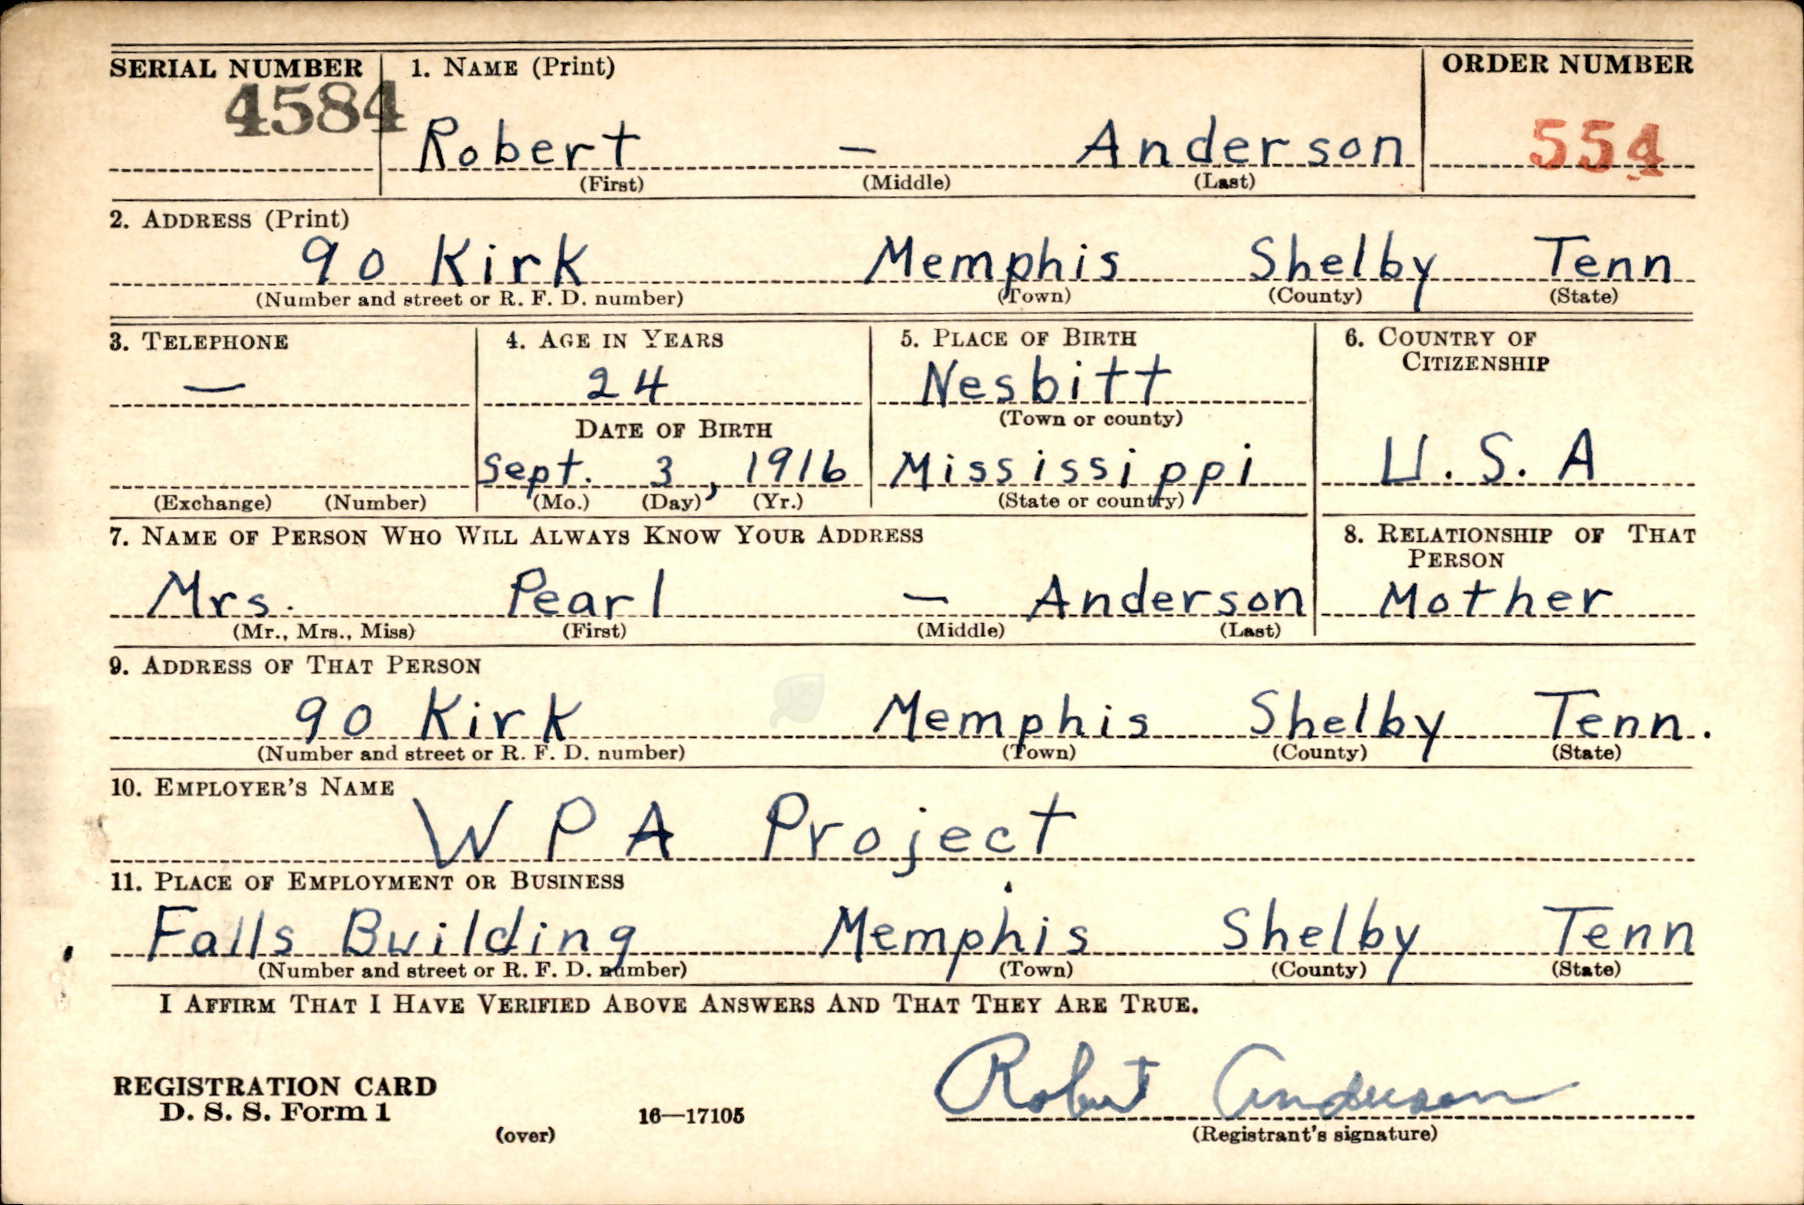 SERIAL NUMBER 1. NAME (Print) ORDER NUMBER
4584 Robert — Anderson 554
(First) (Middle) (Last)
2. ADDRESS (Print)
90 Kirk Memphis Shelby Tenn
(Number and street or R. F. D. number) (Town) (County) (State)
3. TELEPHONE 4. AGE IN YEARS 5. PLACE OF BIRTH 6. COUNTRY OF
CITIZENSHIP
— 24 Nesbitt
(Town or county)
DATE OF BIRTH
Sept. 3, 1916 Mississippi U.S.A
(Exchange) (Number) (Mo.) (Day) (Yr.) (State or country)
7. NAME OF PERSON WHO WILL ALWAYS KNOW YOUR ADDRESS 8. RELATIONSHIP OF THAT
PERSON
Mrs. Pearl — Anderson Mother
(Mr., Mrs., Miss) (First) (Middle) (Last)
9. ADDRESS OF THAT PERSON
90 Kirk Memphis Shelby Tenn.
(Number and street or R. F. D. number) (Town) (County) (State)
10. EMPLOYER'S NAME
WPA Project
11. PLACE OF EMPLOYMENT OR BUSINESS
Falls Building Memphis Shelby Tenn
(Number and street or R. F. D. number) (Town) (County) (State)
I AFFIRM THAT I HAVE VERIFIED ABOVE ANSWERS AND THAT THEY ARE TRUE.
Robert Anderson
REGISTRATION CARD
D. S. S. Form 1 16—17105
(over) (Registrant's signature)